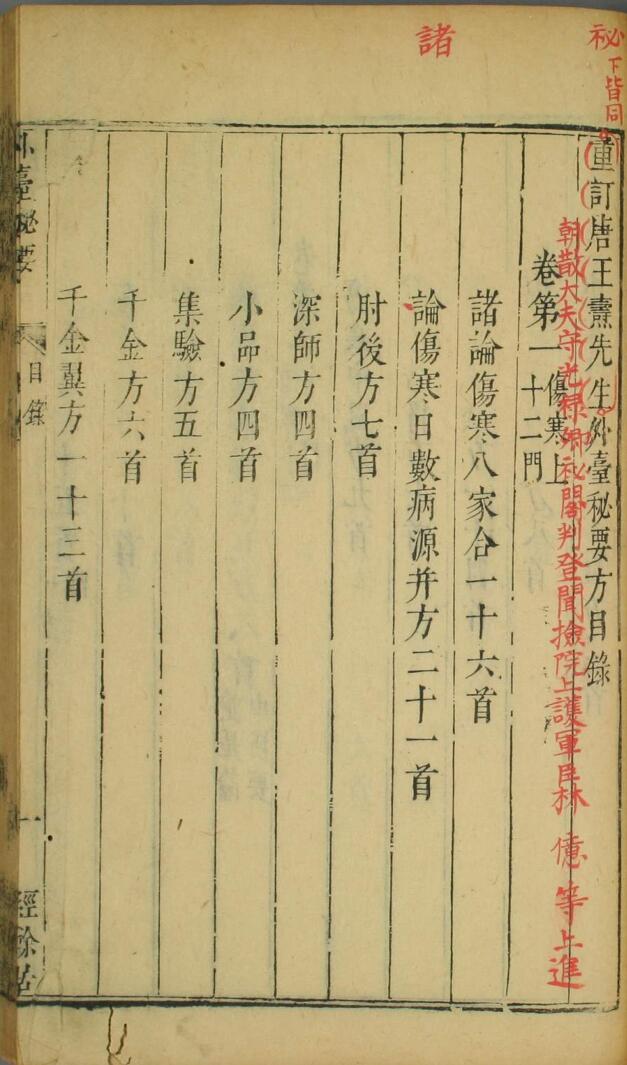 諸
祕下皆同
重訂唐王燾先生外臺秘要方目錄
朝散大夫守光祿卿祕閣判登聞撿院上護軍臣林億等上進
卷第一傷寒上
十二門
諸論傷寒八家合一十六首
論傷寒日數病源并方二十一首
肘後方七首
深師方四首
小品方四首
集驗方五首
千金方六首
千金翼方一十三首
外臺秘要
目錄
一
經餘居